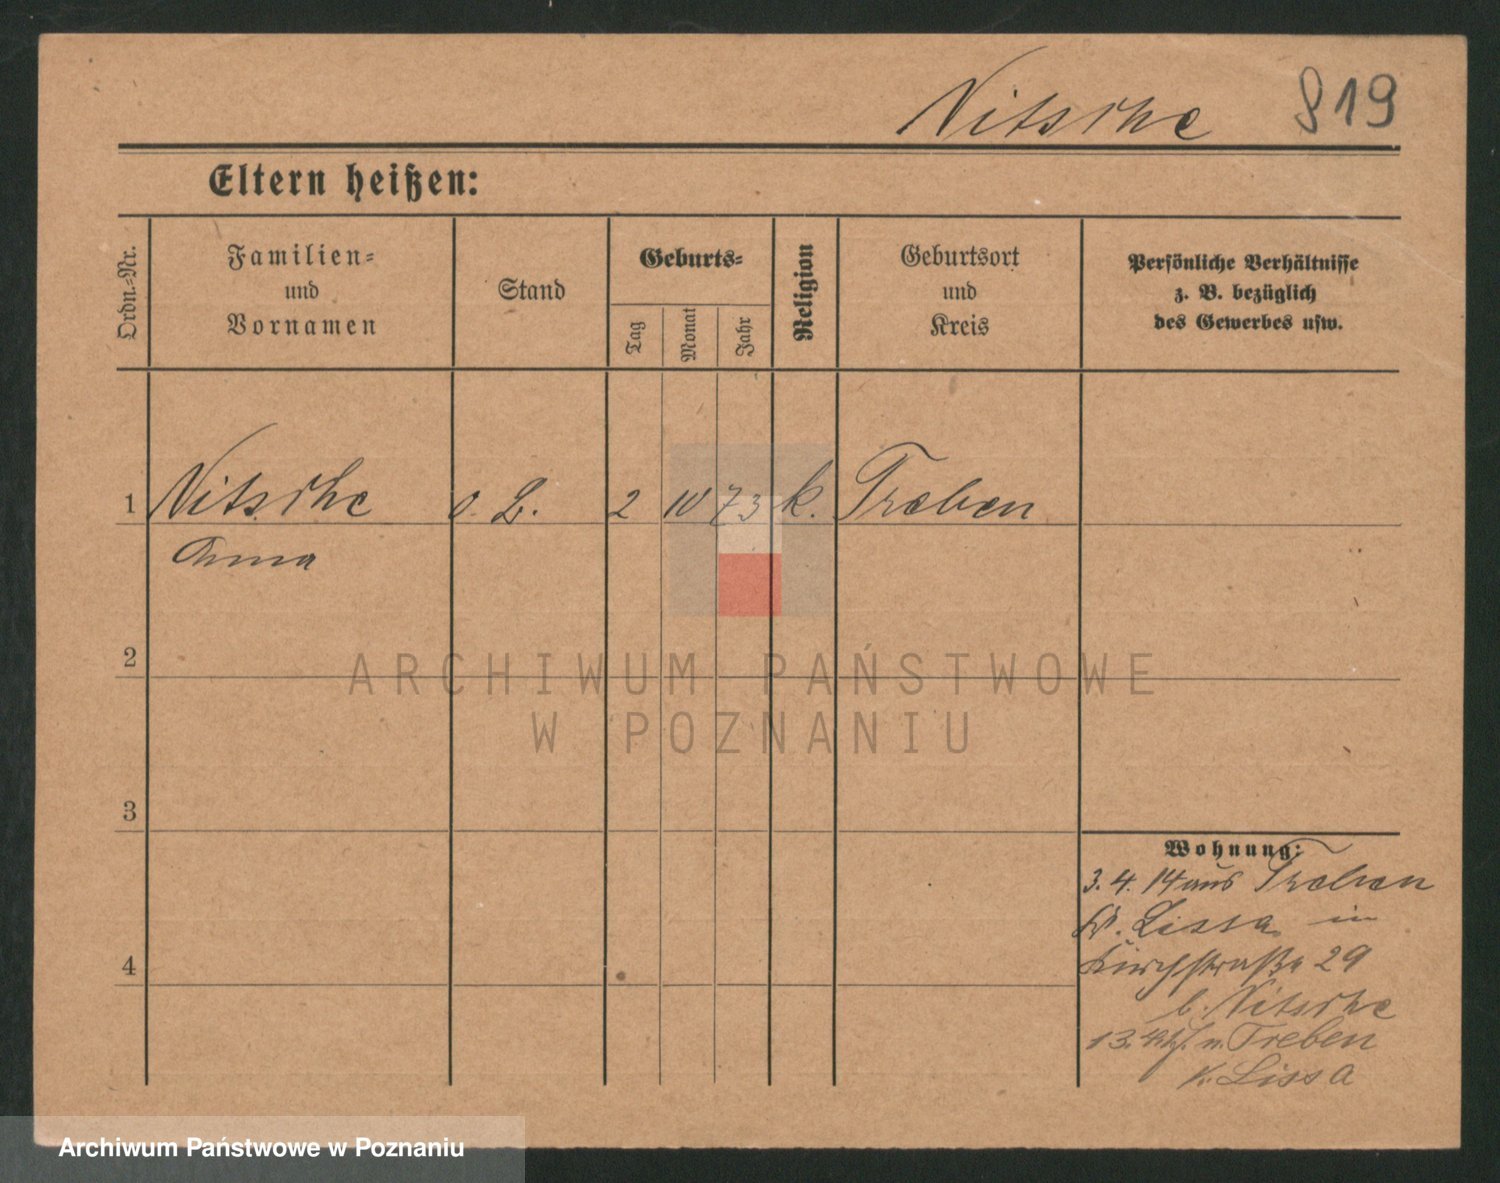 Nitsche 819
Eltern heißen:
Ordn.-Nr.
Familien-
und
Vornamen
Stand
Geburts-
Tag
Monat
Jahr
Religion
Geburtsort
und
Kreis
Persönliche Verhältnisse
z. B. bezüglich
des Gewerbes usw.
1 Nitsche o. B. 2 10 73 k. Treben
Anna
2
3
4
Wohnung:
3. 4. 14 aus Treben
Kr. Lissa in
Kirchstraße 29
b. Nitsche
13. n. Treben
K. Lissa
ARCHIWUM PAŃSTWOWE
W POZNANIU
Archiwum Państwowe w Poznaniu